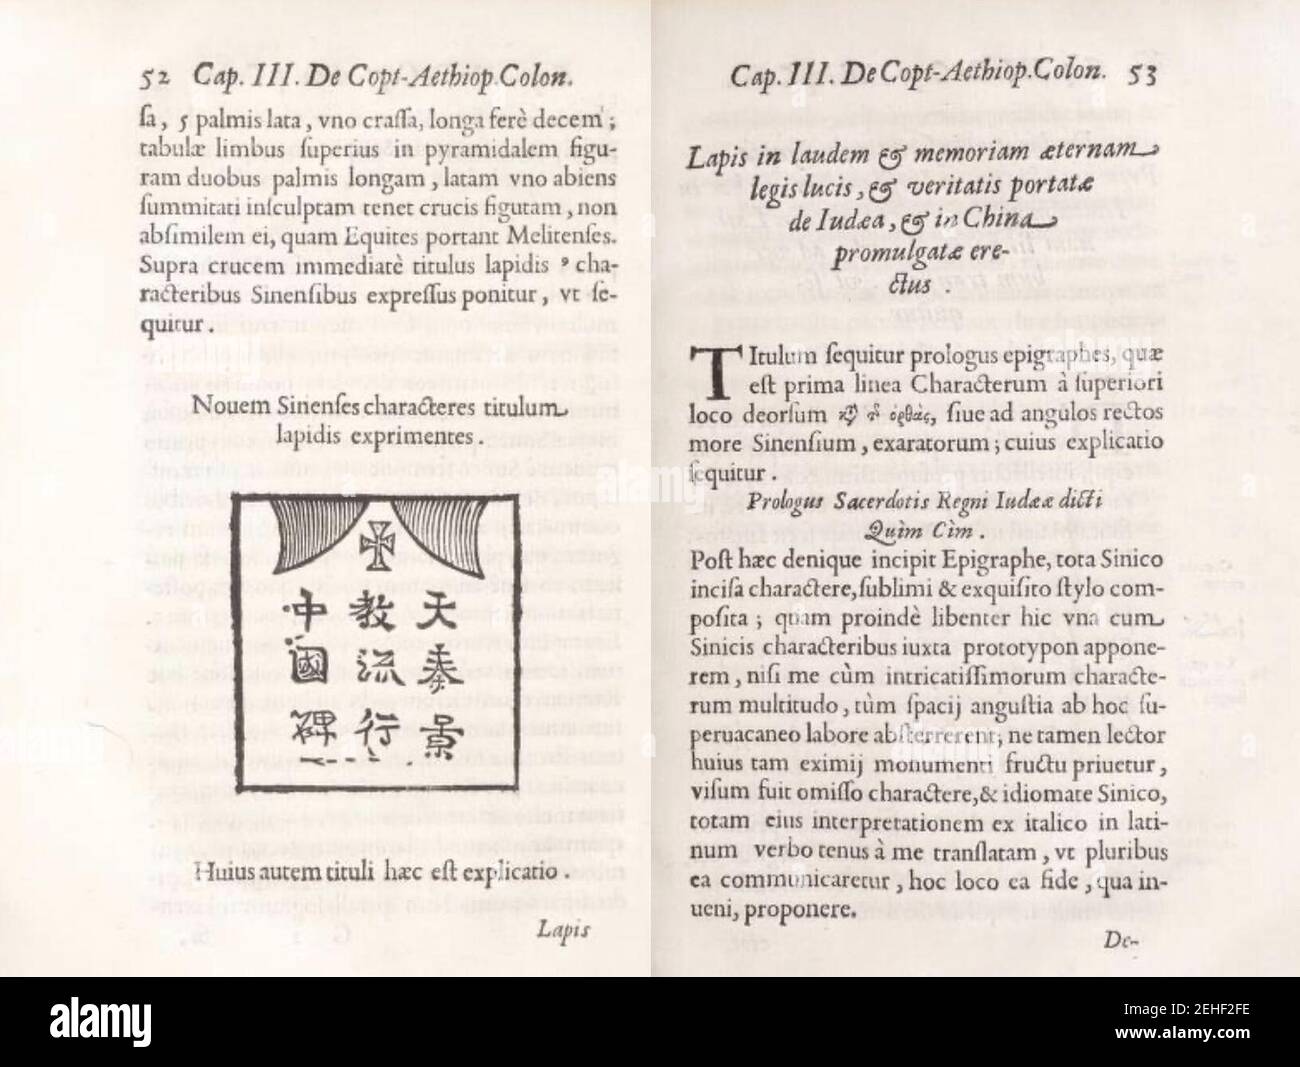 52 Cap. III. De Copt-Aethiop. Colon.
ſa, 5 palmis lata, vno craſſa, longa ferè decem;
tabulæ limbus ſuperius in pyramidalem figu-
ram duobus palmis longam, latam vno abiens
ſummitati inſculptam tenet crucis figuram, non
abſimilem ei, quam Equites portant Melitenſes.
Supra crucem immediatè titulus lapidis 9 cha-
racteribus Sinenſibus expreſſus ponitur, vt ſe-
quitur.
Nouem Sinenſes characteres titulum
lapidis exprimentes.
天泰景
教流行
中國碑
Huius autem tituli hæc eſt explicatio.
Lapis
Cap. III. De Copt-Aethiop. Colon. 53
Lapis in laudem & memoriam æternam
legis lucis, & veritatis portatæ
de Iudæa, & in China
promulgatæ ere-
ctus.
TItulum ſequitur prologus epigraphes, quæ
eſt prima linea Characterum à ſuperiori
loco deorſum ὀρθὰς, ſiue ad angulos rectos
more Sinenſium, exaratorum; cuius explicatio
ſequitur.
Prologus Sacerdotis Regni Iudææ dicti
Quìm Cim.
Poſt hæc denique incipit Epigraphe, tota Sinico
inciſa charactere, ſublimi & exquiſito ſtylo com-
poſita; quam proindè libenter hic vna cum
Sinicis characteribus iuxta prototypon appone-
rem, niſi me cùm intricatiſſimorum characte-
rum multitudo, tùm ſpacij anguſtia ab hoc ſu-
peruacaneo labore abſterrerent; ne tamen lector
huius tam eximij monumenti fructu priuetur,
viſum fuit omiſſo charactere, & idiomate Sinico,
totam eius interpretationem ex italico in lati-
num verbo tenus à me tranſlatam, vt pluribus
ea communicaretur, hoc loco ea fide, qua in-
ueni, proponere.
De-
alamy
Image ID: 2EHF2FE
www.alamy.com